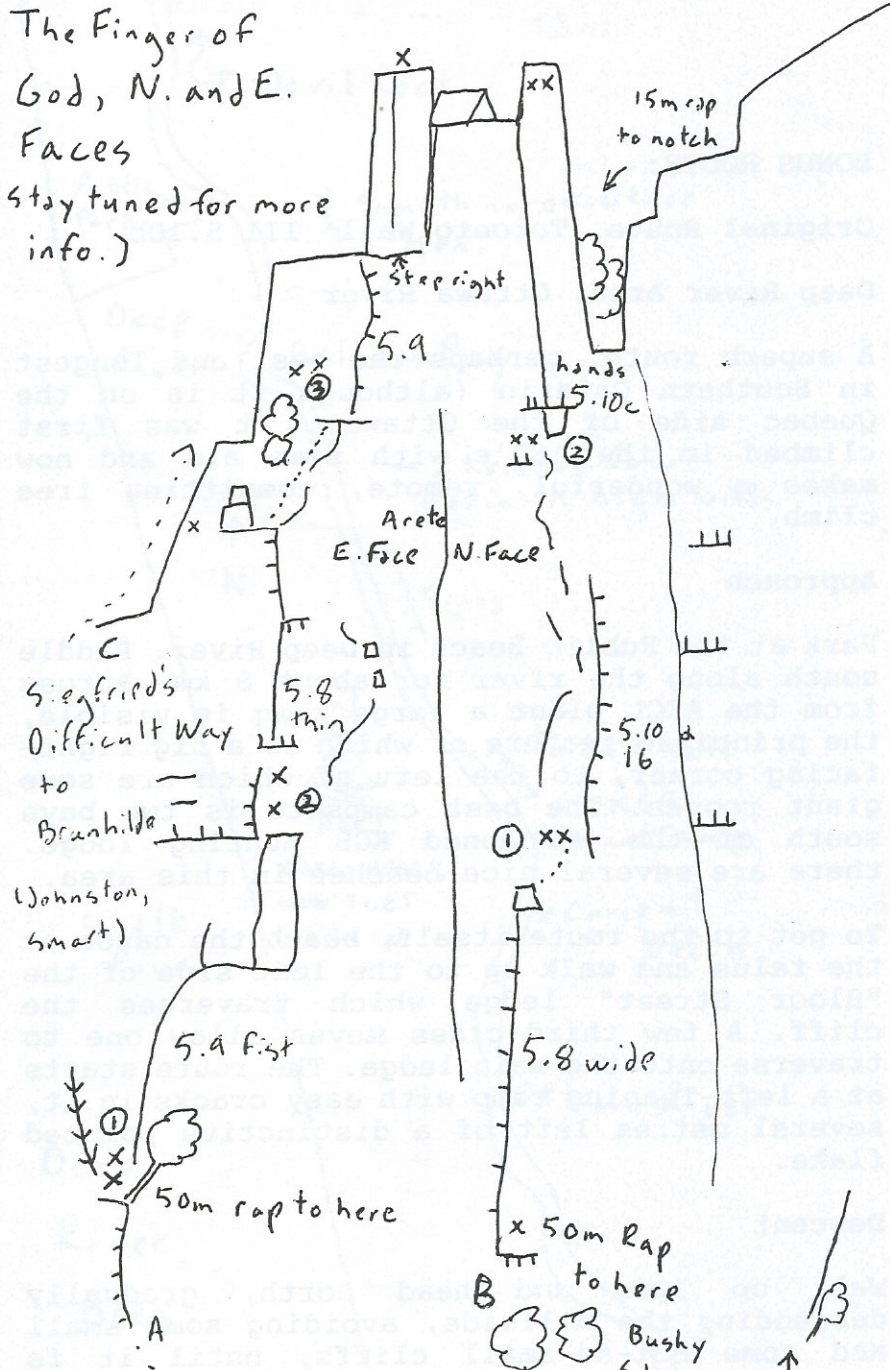 The Finger of
God, N. and E.
Faces
Stay tuned for more
info.)
x
xx
15m rap
to notch
Step right
5.9
x x
③
hands
5.10c
xx
②
x
Arete
E. Face
N. Face
C
Siegfried's
Difficult Way
to
Brunhilde
(Johnston,
Smart)
5.8
thin
x
x
②
5.10 a
16
①
xx
5.9 fist
5.8 wide
①
x
x
50m rap to here
x
50m Rap
to here
A
B
Bushy